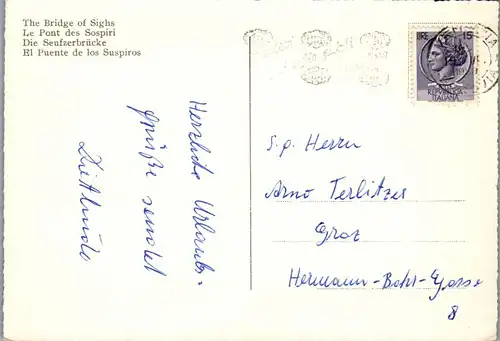 The Bridge of Sighs
Le Pont des Sospiri
Die Seufzerbrücke
El Puente de los Suspiros
LIRE 15
REPUBBLICA
ITALIANA
Herzliche Urlaubs-
grüße sendet
Dietlinde
S.g. Herrn
Arno Terlitzer
Graz
Hermann-Bahr-Gasse
8